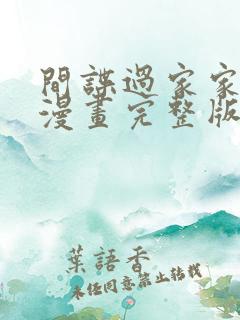 間諜過家家
漫畫完整版
葉語香
未經同意禁止轉載